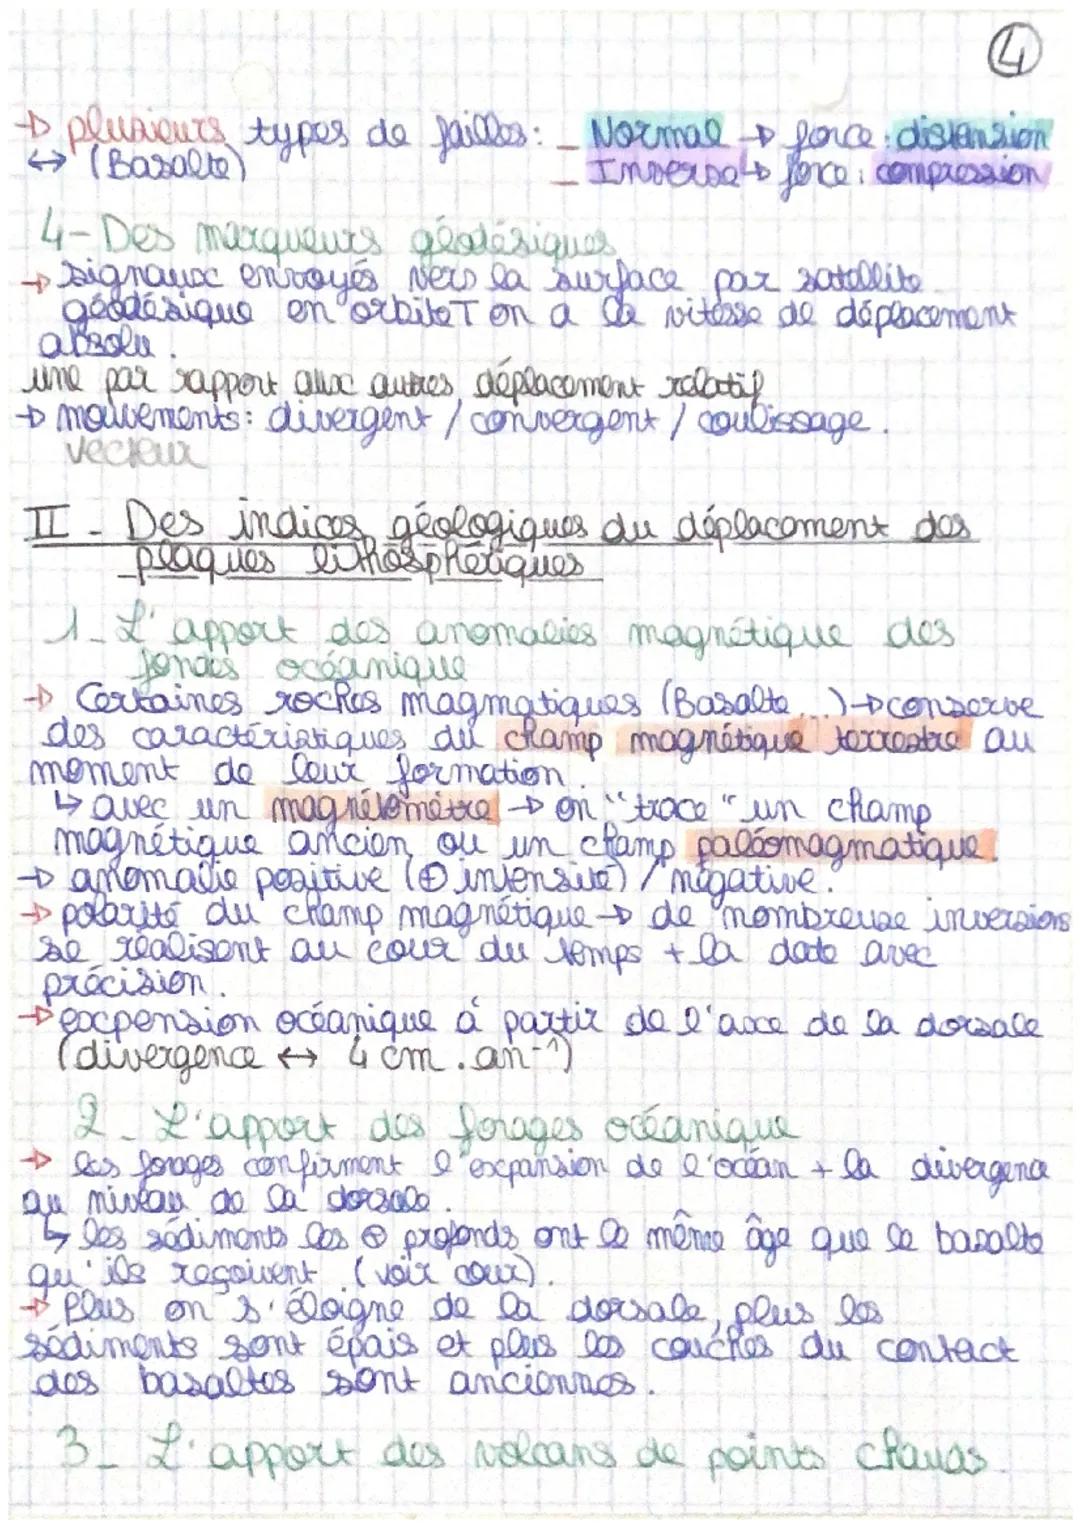 4
→ plusieurs types de failles: _ Normal → force: distension
↔ (Basalte) _ Inverse → force: compression
4- Des marqueurs géodésiques
→ signaux envoyés vers la surface par satellite
géodésique en orbite T on a la vitesse de déplacement
absolu.
une par rapport aux autres, déplacement relatif
→ mouvements: divergent / convergent / coulissage.
vecteur
II - Des indices géologiques du déplacement des
plaques lithosphériques
1- L'apport des anomalies magnétique des
fonds océanique
→ Certaines roches magmatiques (Basalte...) → conserve
des caractéristiques du champ magnétique terrestre au
moment de leur formation.
↳ avec un magnétomètre → on "trace" un champ
magnétique ancien ou un champ paléomagmatique.
→ anomalie positive (⊕ intensité) / négative.
→ polarité du champ magnétique → de nombreuse inversions
se réalisent au cour du temps + la date avec
précision.
→ expension océanique à partir de l'axe de la dorsale
(divergence ↔ 4 cm.an-1)
2- L'apport des forages océanique
→ les forages confirment l'expansion de l'océan + la divergence
au niveau de la dorsale.
↳ les sédiments les ⊕ profonds ont le même âge que le basalte
qu'ils reçoivent (voir cour).
→ Plus on s'éloigne de la dorsale, plus les
sédiments sont épais et plus les couches du contact
des basaltes sont anciennes.
3- L'apport des volcans de points chauds